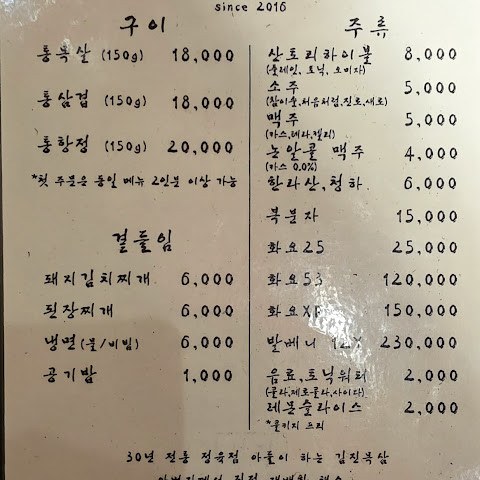 since 2016
구이
통목살 (150g) 18,000
통삼겹 (150g) 18,000
통항정 (150g) 20,000
*첫 주문은 동일 메뉴 2인분 이상 가능
곁들임
돼지김치찌개 6,000
된장찌개 6,000
냉면(물/비빔) 6,000
공기밥 1,000
주류
산토리하이볼 8,000
(플레인, 토닉, 오미자)
소주 5,000
(참이슬,처음처럼,진로,새로)
맥주 5,000
(카스,테라,켈리)
논알콜 맥주 4,000
(카스 0.0%)
한라산,청하 6,000
복분자 15,000
화요25 25,000
화요53 120,000
화요XP 150,000
발베니 12Y 230,000
음료,토닉워터 2,000
(콜라,제로콜라,사이다)
레몬슬라이스 2,000
*콜키지 프리
30년 전통 정육점 아들이 하는 김진목삼